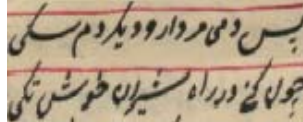 پس دمی مردار و دیگر دم سگی
چون کنی در راه شیران خوش تگی